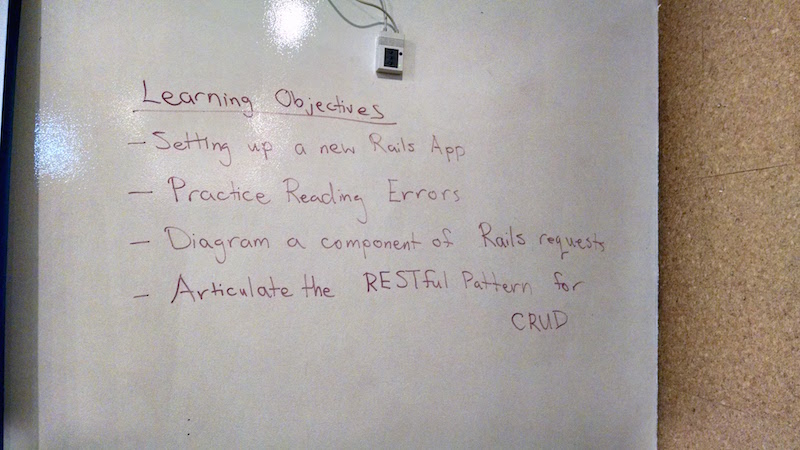 Learning Objectives
- Setting up a new Rails App
- Practice Reading Errors
- Diagram a component of Rails requests
- Articulate the RESTful Pattern for
CRUD